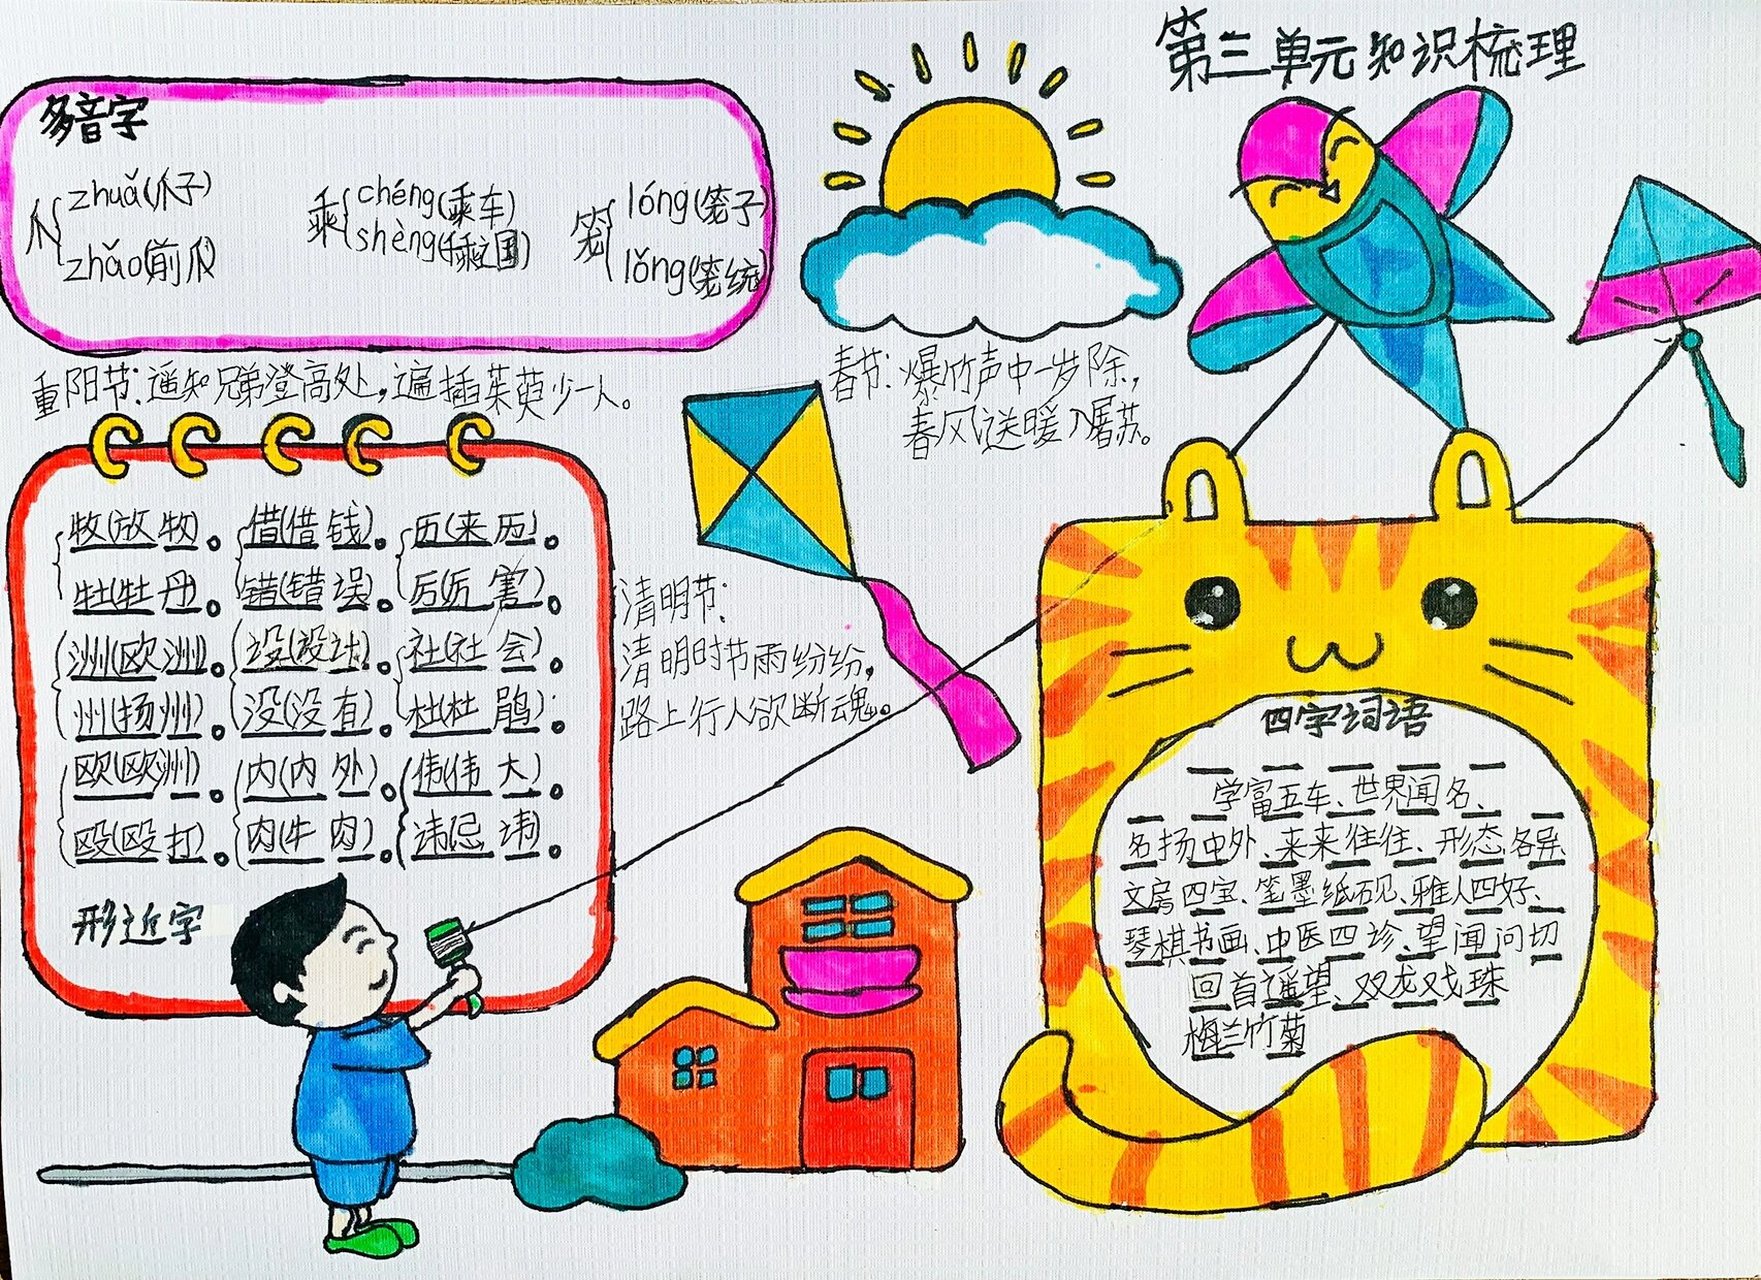 第三单元知识梳理
多音字
爪{zhuǎ(爪子)
zhǎo(前爪)
乘{chéng(乘车)
shèng(千乘之国)
笼{lóng(笼子)
lǒng(笼统)
重阳节:遥知兄弟登高处,遍插茱萸少一人。
春节:爆竹声中一岁除,
春风送暖入屠苏。
牧(放牧)。借(借钱)。历(来历)。
牡(牡丹)。错(错误)。厉(厉害)。
洲(欧洲)。设(设计)。社(社会)。
州(扬州)。没(没有)。杜(杜鹃)。
欧(欧洲)。内(内外)。伟(伟大)。
殴(殴打)。肉(牛肉)。讳(忌讳)。
形近字
清明节:
清明时节雨纷纷,
路上行人欲断魂。
四字词语
学富五车、世界闻名、
名扬中外、来来往往、形态各异
文房四宝、笔墨纸砚、雅人四好、
琴棋书画、中医四诊、望闻问切
回首遥望、双龙戏珠
梅兰竹菊